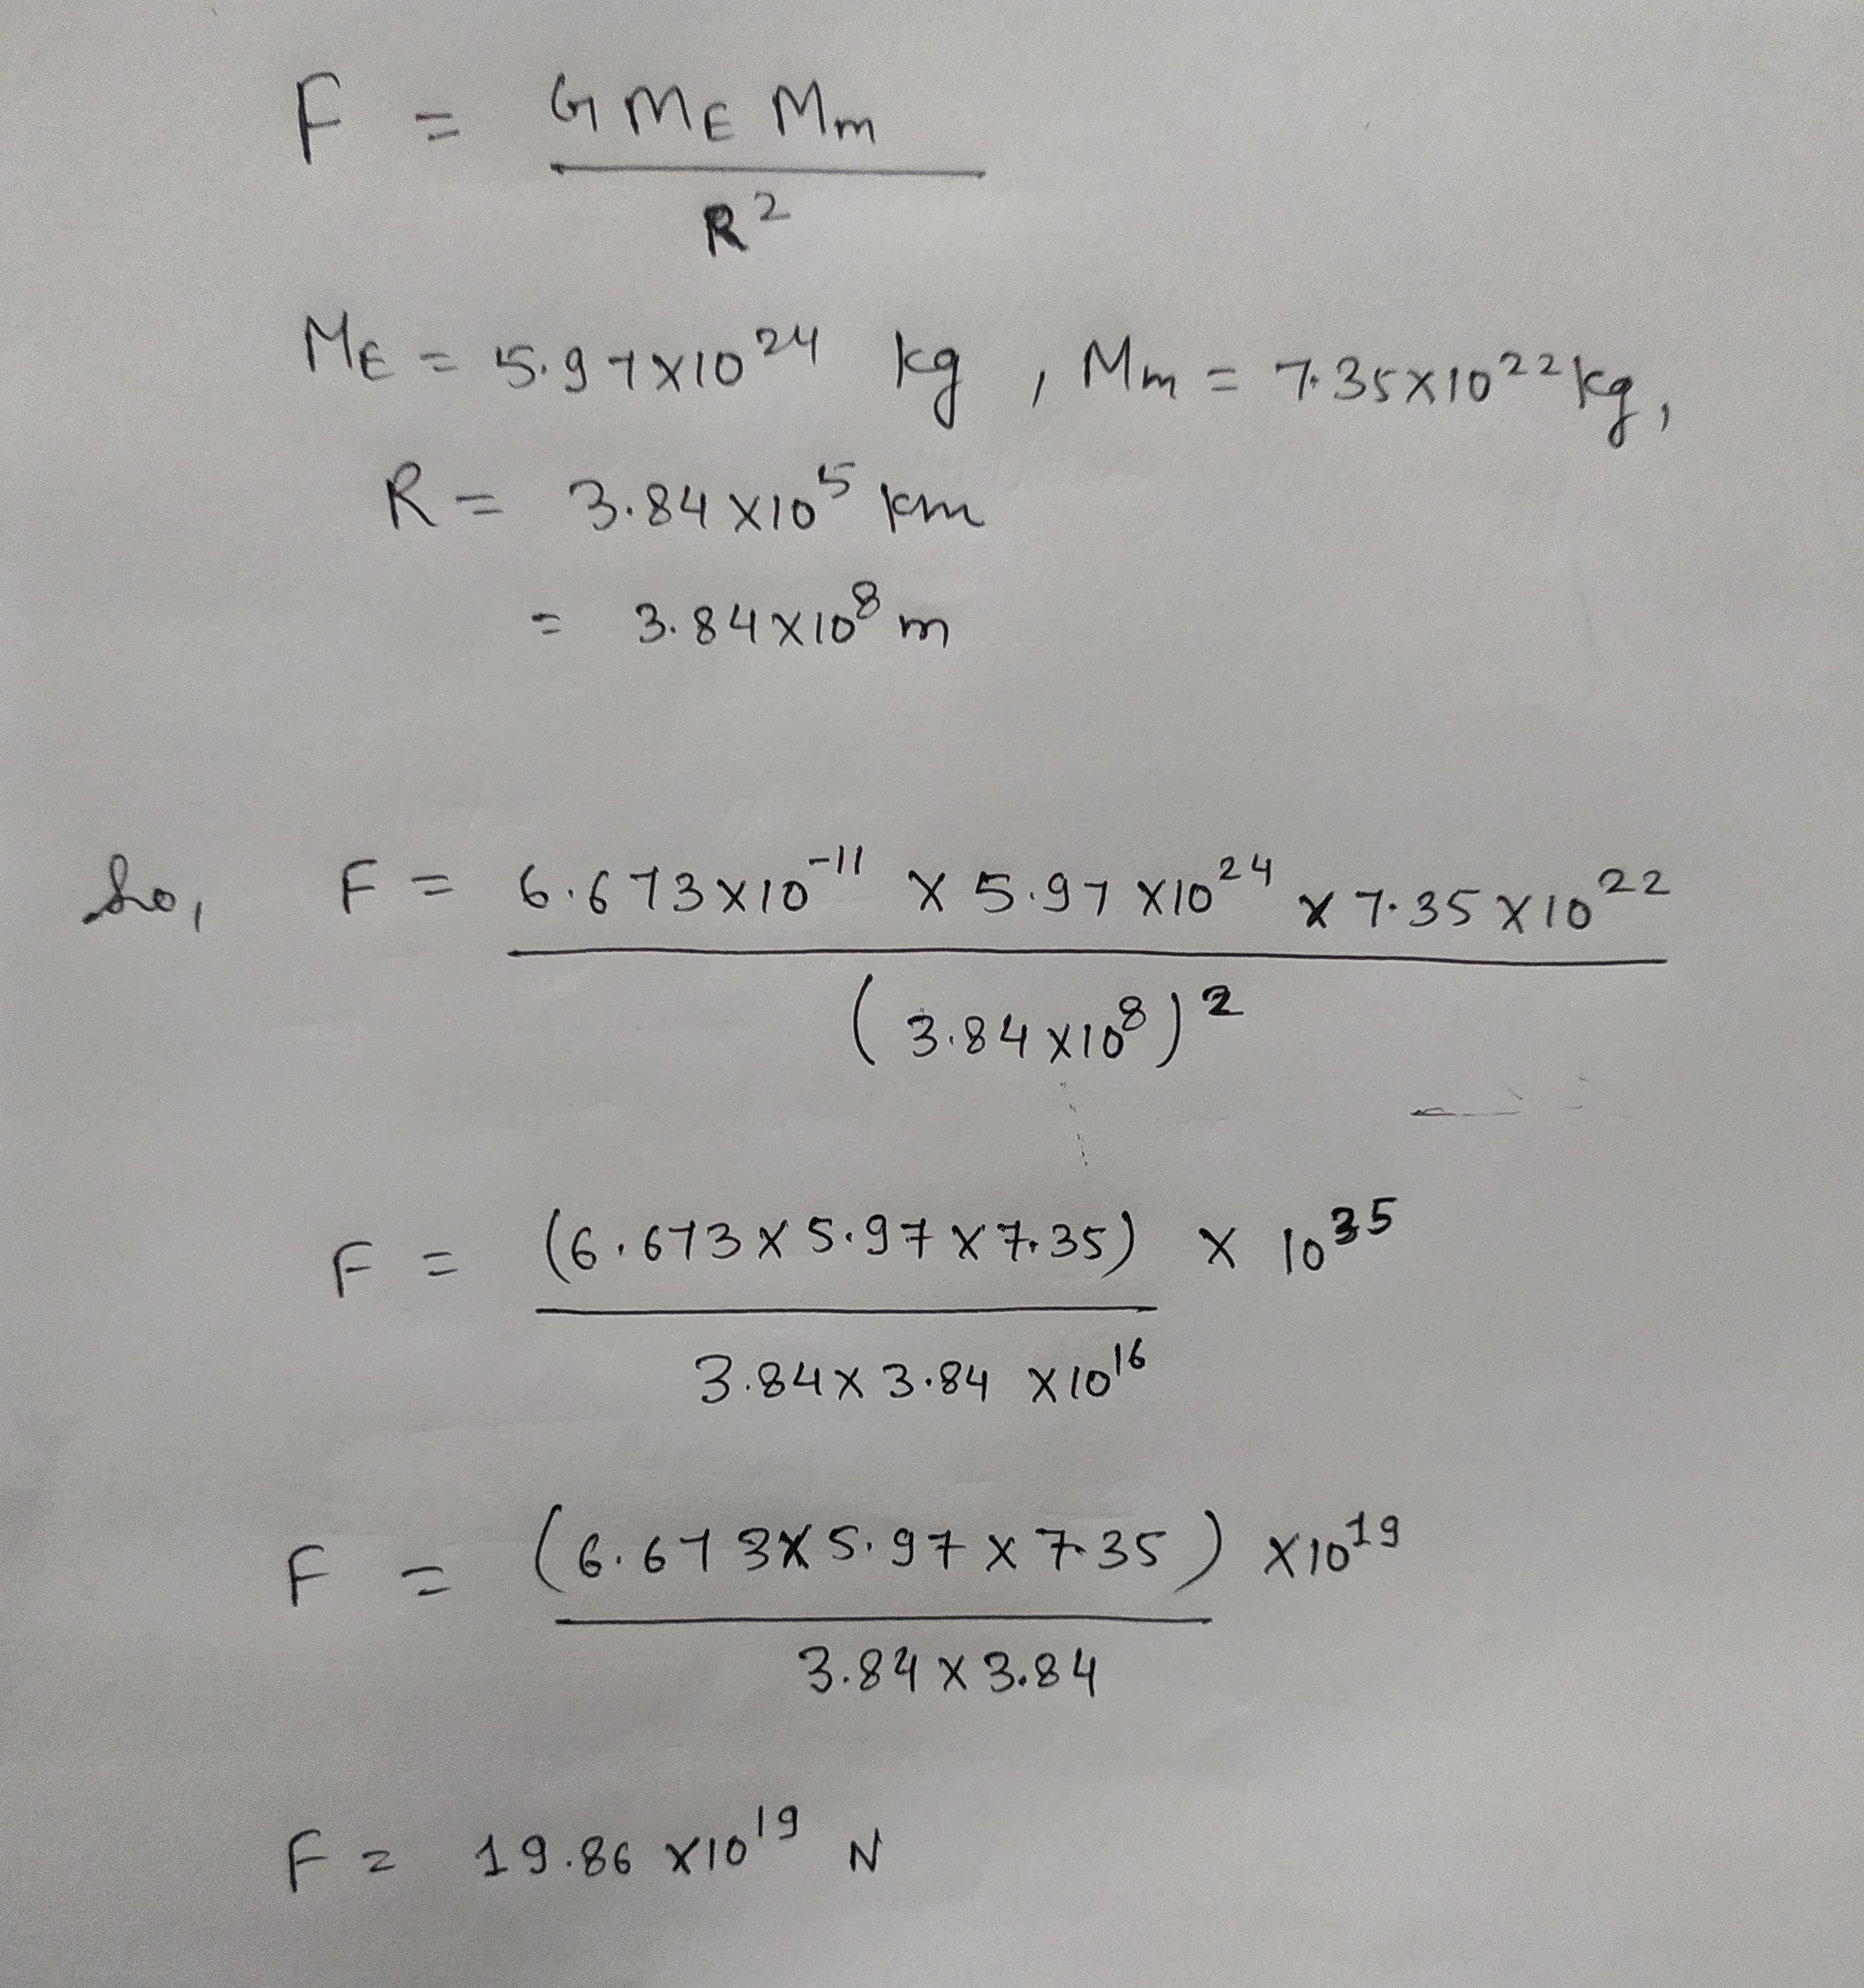 F = G M_E M_m
R²
M_E = 5.97×10²⁴ kg , M_m = 7.35×10²² kg,
R = 3.84×10⁵ km
= 3.84×10⁸ m
So, F = 6.673×10⁻¹¹ × 5.97×10²⁴ × 7.35×10²²
(3.84×10⁸)²
F = (6.673×5.97×7.35) × 10³⁵
3.84×3.84 ×10¹⁶
F = (6.673×5.97×7.35) ×10¹⁹
3.84×3.84
F = 19.86×10¹⁹ N